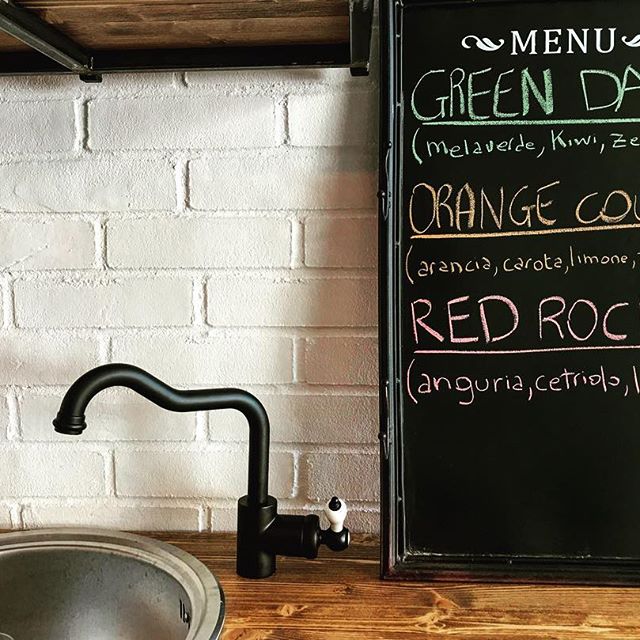 MENU
GREEN DA
(melaverde, Kiwi, Ze
ORANGE COU
(arancia, carota, limone,
RED ROC
(anguria, cetriolo, l